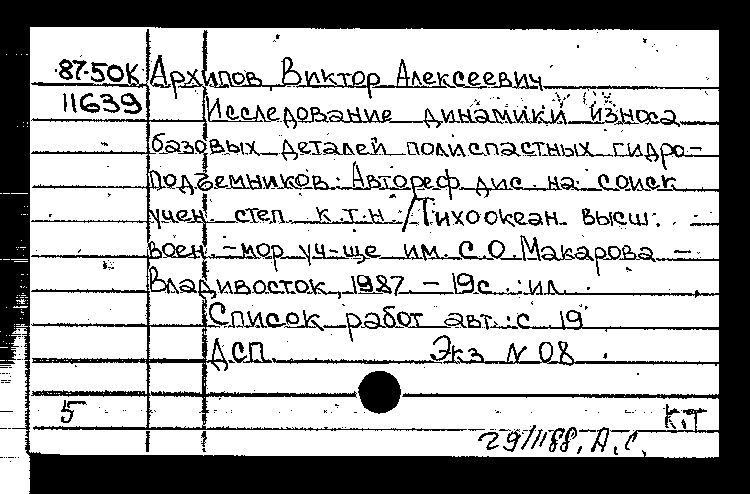 87-50К Архипов, Виктор Алексеевич
11639 Исследование динамики износа
базовых деталей полиспастных гидро-
подъемников: Автореф дис. на соиск
учен. степ. к.т.н. /Тихоокеан. высш.
воен.-мор уч-ще им. С.О. Макарова -
Владивосток, 1987. - 19с.: ил.
Список работ авт.: с 19
ДСП. Экз N 08.
5 К.Т
29/1188, А.С.